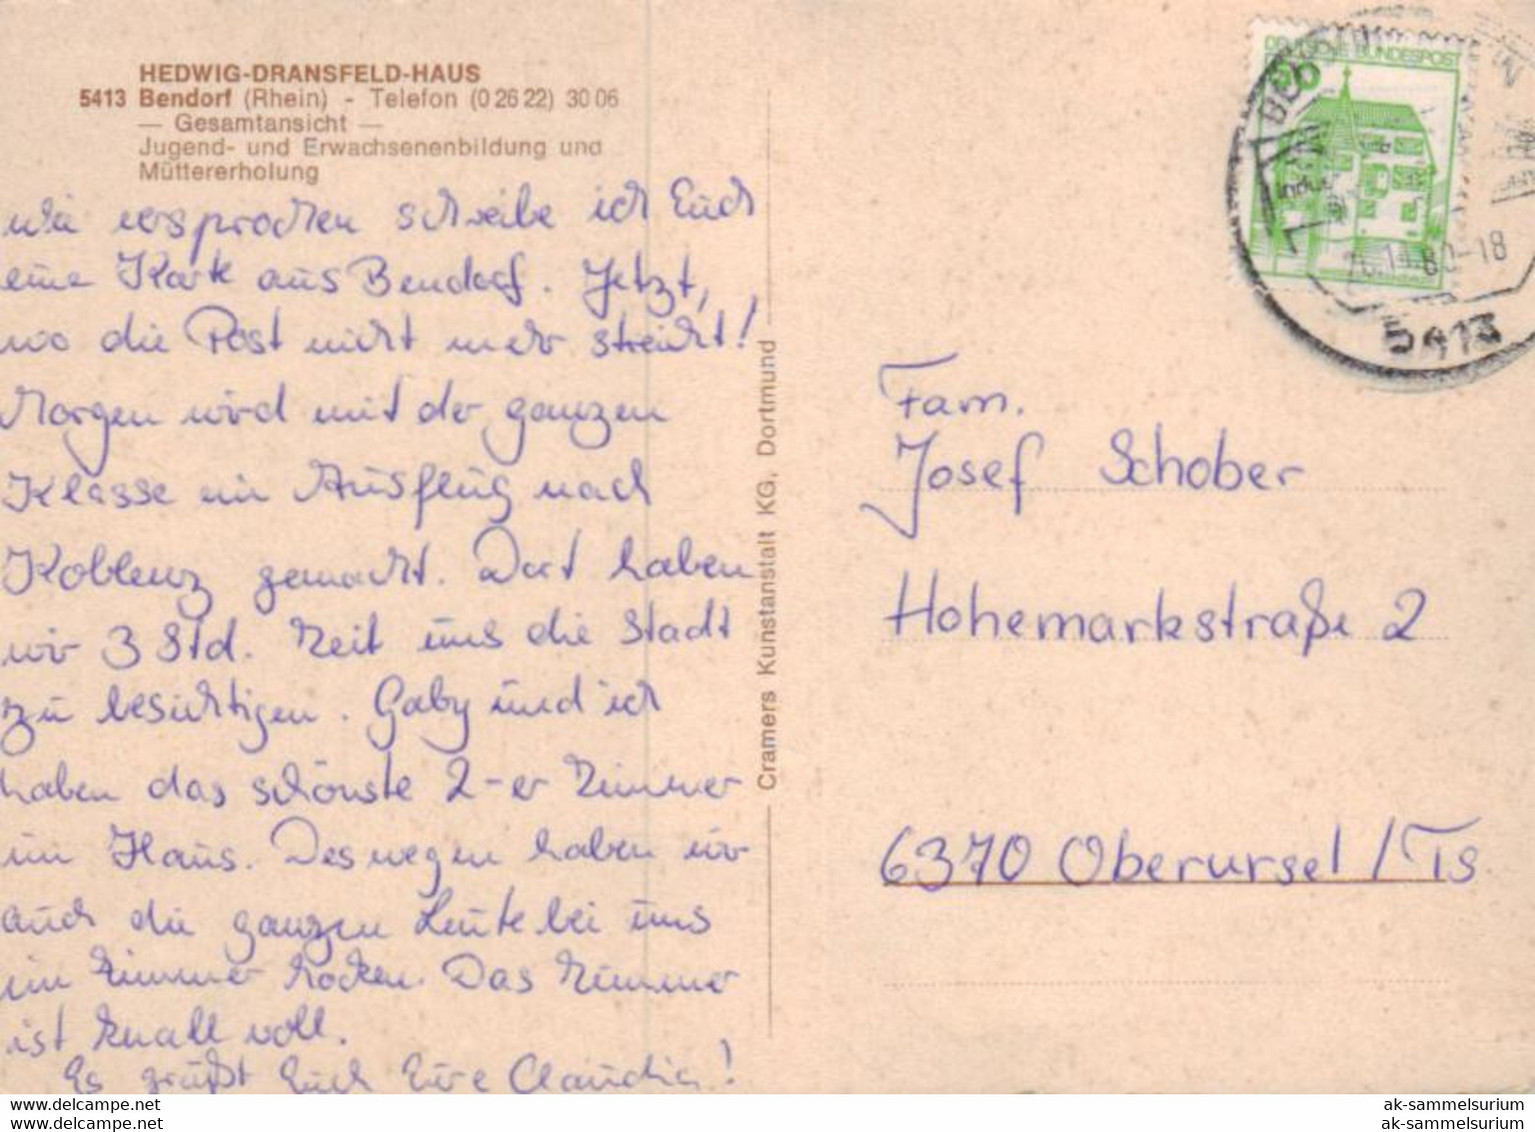 HEDWIG-DRANSFELD-HAUS
5413 Bendorf (Rhein) - Telefon (0 26 22) 30 06
— Gesamtansicht —
Jugend- und Erwachsenenbildung und
Müttererholung
wie versprochen schreibe ich Euch
eine Karte aus Bendorf. Jetzt,
wo die Post nicht mehr streikt!
Morgen wird mit der ganzen
Klasse ein Ausflug nach
Koblenz gemacht. Dort haben
wir 3 Std. Zeit uns die Stadt
zu besichtigen. Gaby und ich
haben das schönste 2-er Zimmer
im Haus. Deswegen haben wir
auch die ganzen Leute bei uns
im Zimmer hocken. Das Zimmer
ist knall voll.
Es grüßt Euch Eure Claudia!
Cramers Kunstanstalt KG, Dortmund
DEUTSCHE BUNDESPOST
50
80-18
5413
Fam.
Josef Schober
Hohemarkstraße 2
6370 Oberursel/Ts
ak-sammelsurium.com
ak-sammelsurium.com
ak-sammelsurium
ak-sammelsurium